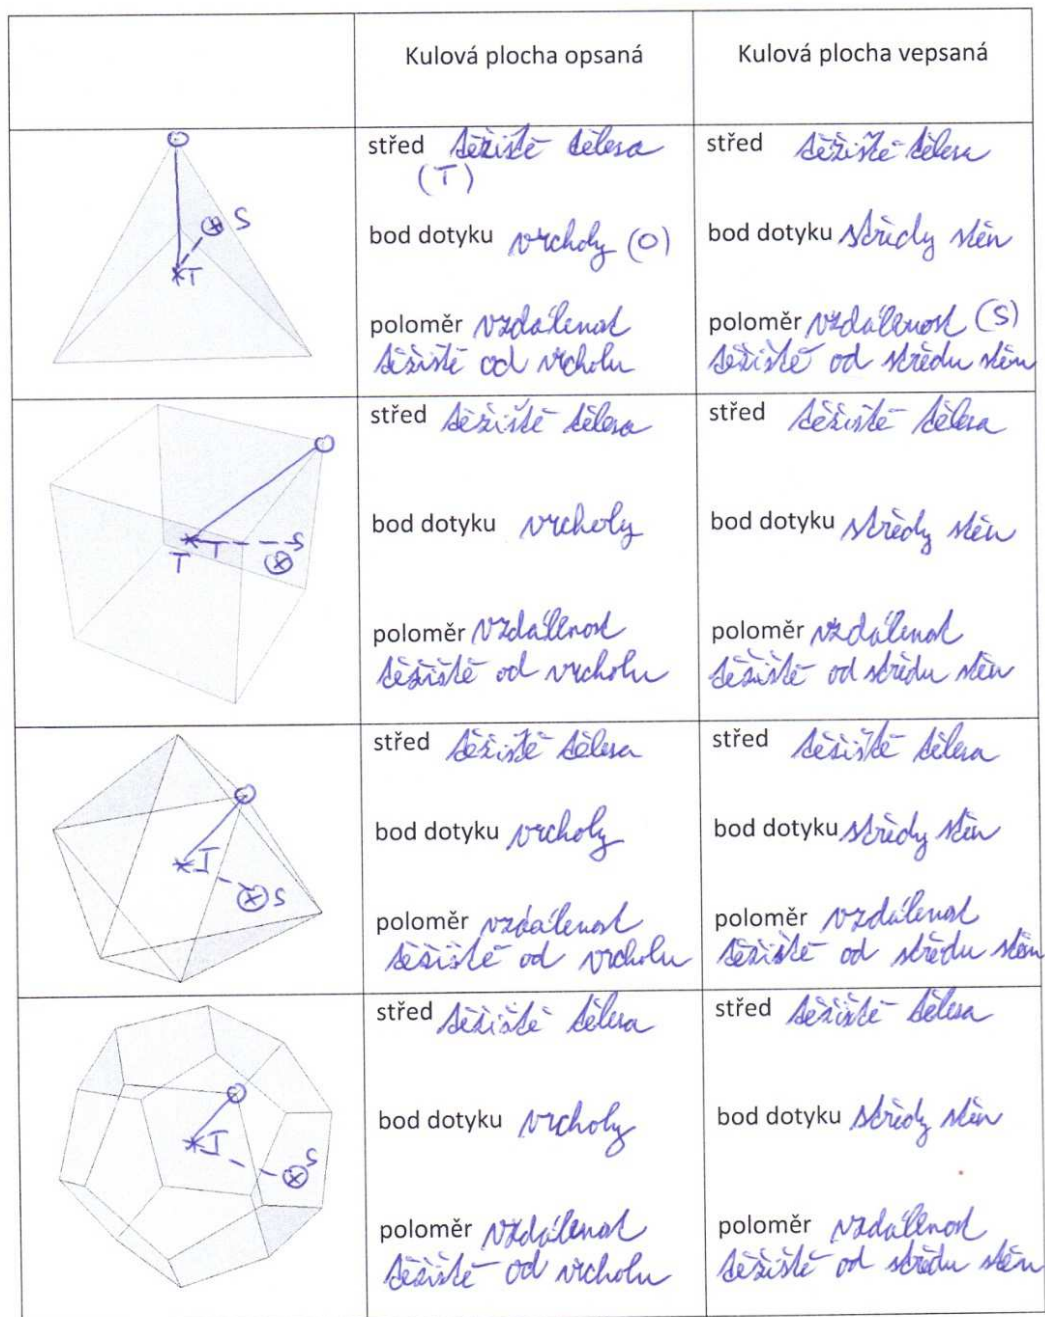 Kulová plocha opsaná
Kulová plocha vepsaná
T
S
střed těžiště tělesa
(T)
bod dotyku vrcholy (O)
poloměr vzdálenost
těžiště od vrcholu
střed těžiště tělesa
bod dotyku středy stěn
poloměr vzdálenost (S)
těžiště od středu stěn
T T
S
střed těžiště tělesa
bod dotyku vrcholy
poloměr vzdálenost
těžiště od vrcholu
střed těžiště tělesa
bod dotyku středy stěn
poloměr vzdálenost
těžiště od středu stěn
T
S
střed těžiště tělesa
bod dotyku vrcholy
poloměr vzdálenost
těžiště od vrcholu
střed těžiště tělesa
bod dotyku středy stěn
poloměr vzdálenost
těžiště od středu stěn
T
S
střed těžiště tělesa
bod dotyku vrcholy
poloměr vzdálenost
těžiště od vrcholu
střed těžiště tělesa
bod dotyku středy stěn
poloměr vzdálenost
těžiště od středu stěn